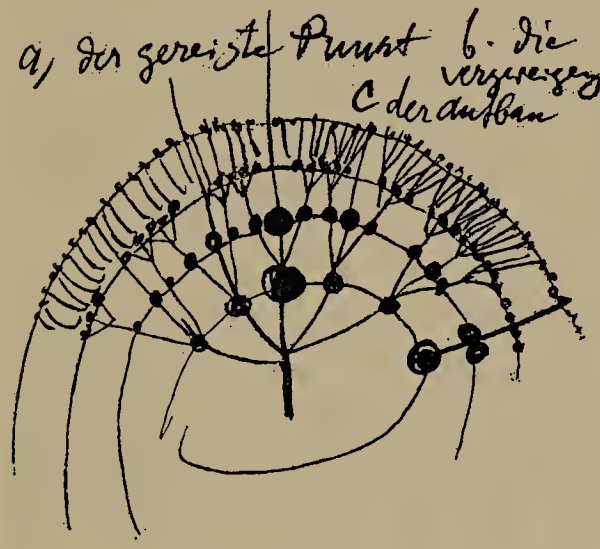 a) der gereizte Punkt b. die
verzweigung
C der aufbau